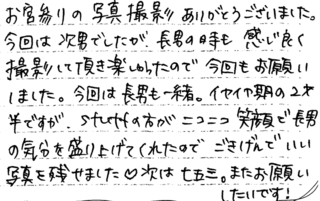 お宮参りの写真撮影ありがとうございました。
今回は次男でしたが、長男の時も感じ良く
撮影して頂き楽しかったので今回もお願い
しました。今回は長男も一緒。イヤイヤ期の2才
半ですが、スタッフの方がニコニコ笑顔で長男
の気分を盛り上げてくれたのでごきげんでいい
写真を残せました♡次は七五三。またお願い
したいです!